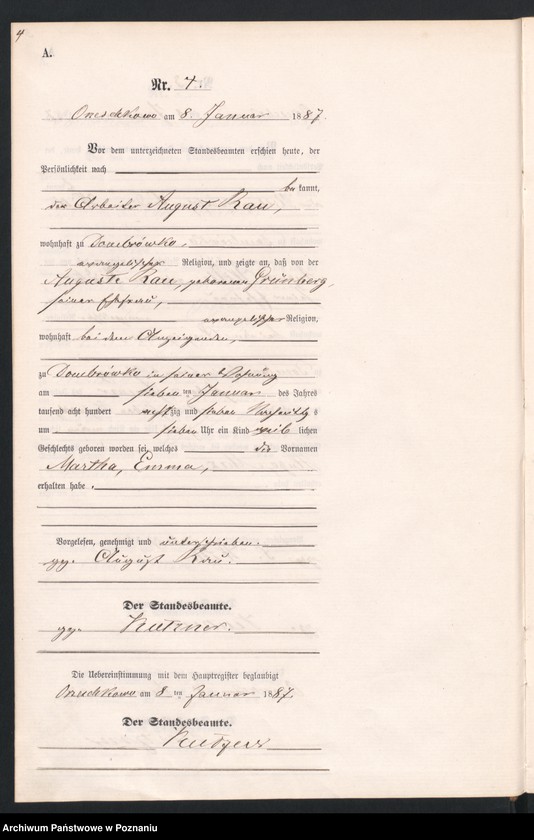 4
A.
Nr. 4.
am 8. Januar 1887.
Vor dem unterzeichneten Standesbeamten erschien heute, der
Persönlichkeit nach
be kannt,
der Arbeiter August Rau,
wohnhaft zu Dombrówka,
evangelischer Religion, und zeigte an, daß von der
Auguste Rau, geborenen Grünberg,
seiner Ehefrau,
evangelischer Religion,
wohnhaft bei dem Anzeigenden,
zu Dombrówka in seiner Wohnung
am sieben ten Januar des Jahres
tausend acht hundert achtzig und sieben
um sieben Uhr ein Kind weib lichen
Geschlechts geboren worden sei, welches die Vornamen
Martha, Emma,
erhalten habe.
Vorgelesen, genehmigt und unterschrieben.
gez. August Rau.
Der Standesbeamte.
gez.
Die Uebereinstimmung mit dem Hauptregister beglaubigt
am 8 ten Januar 1887.
Der Standesbeamte.
Archiwum Państwowe w Poznaniu